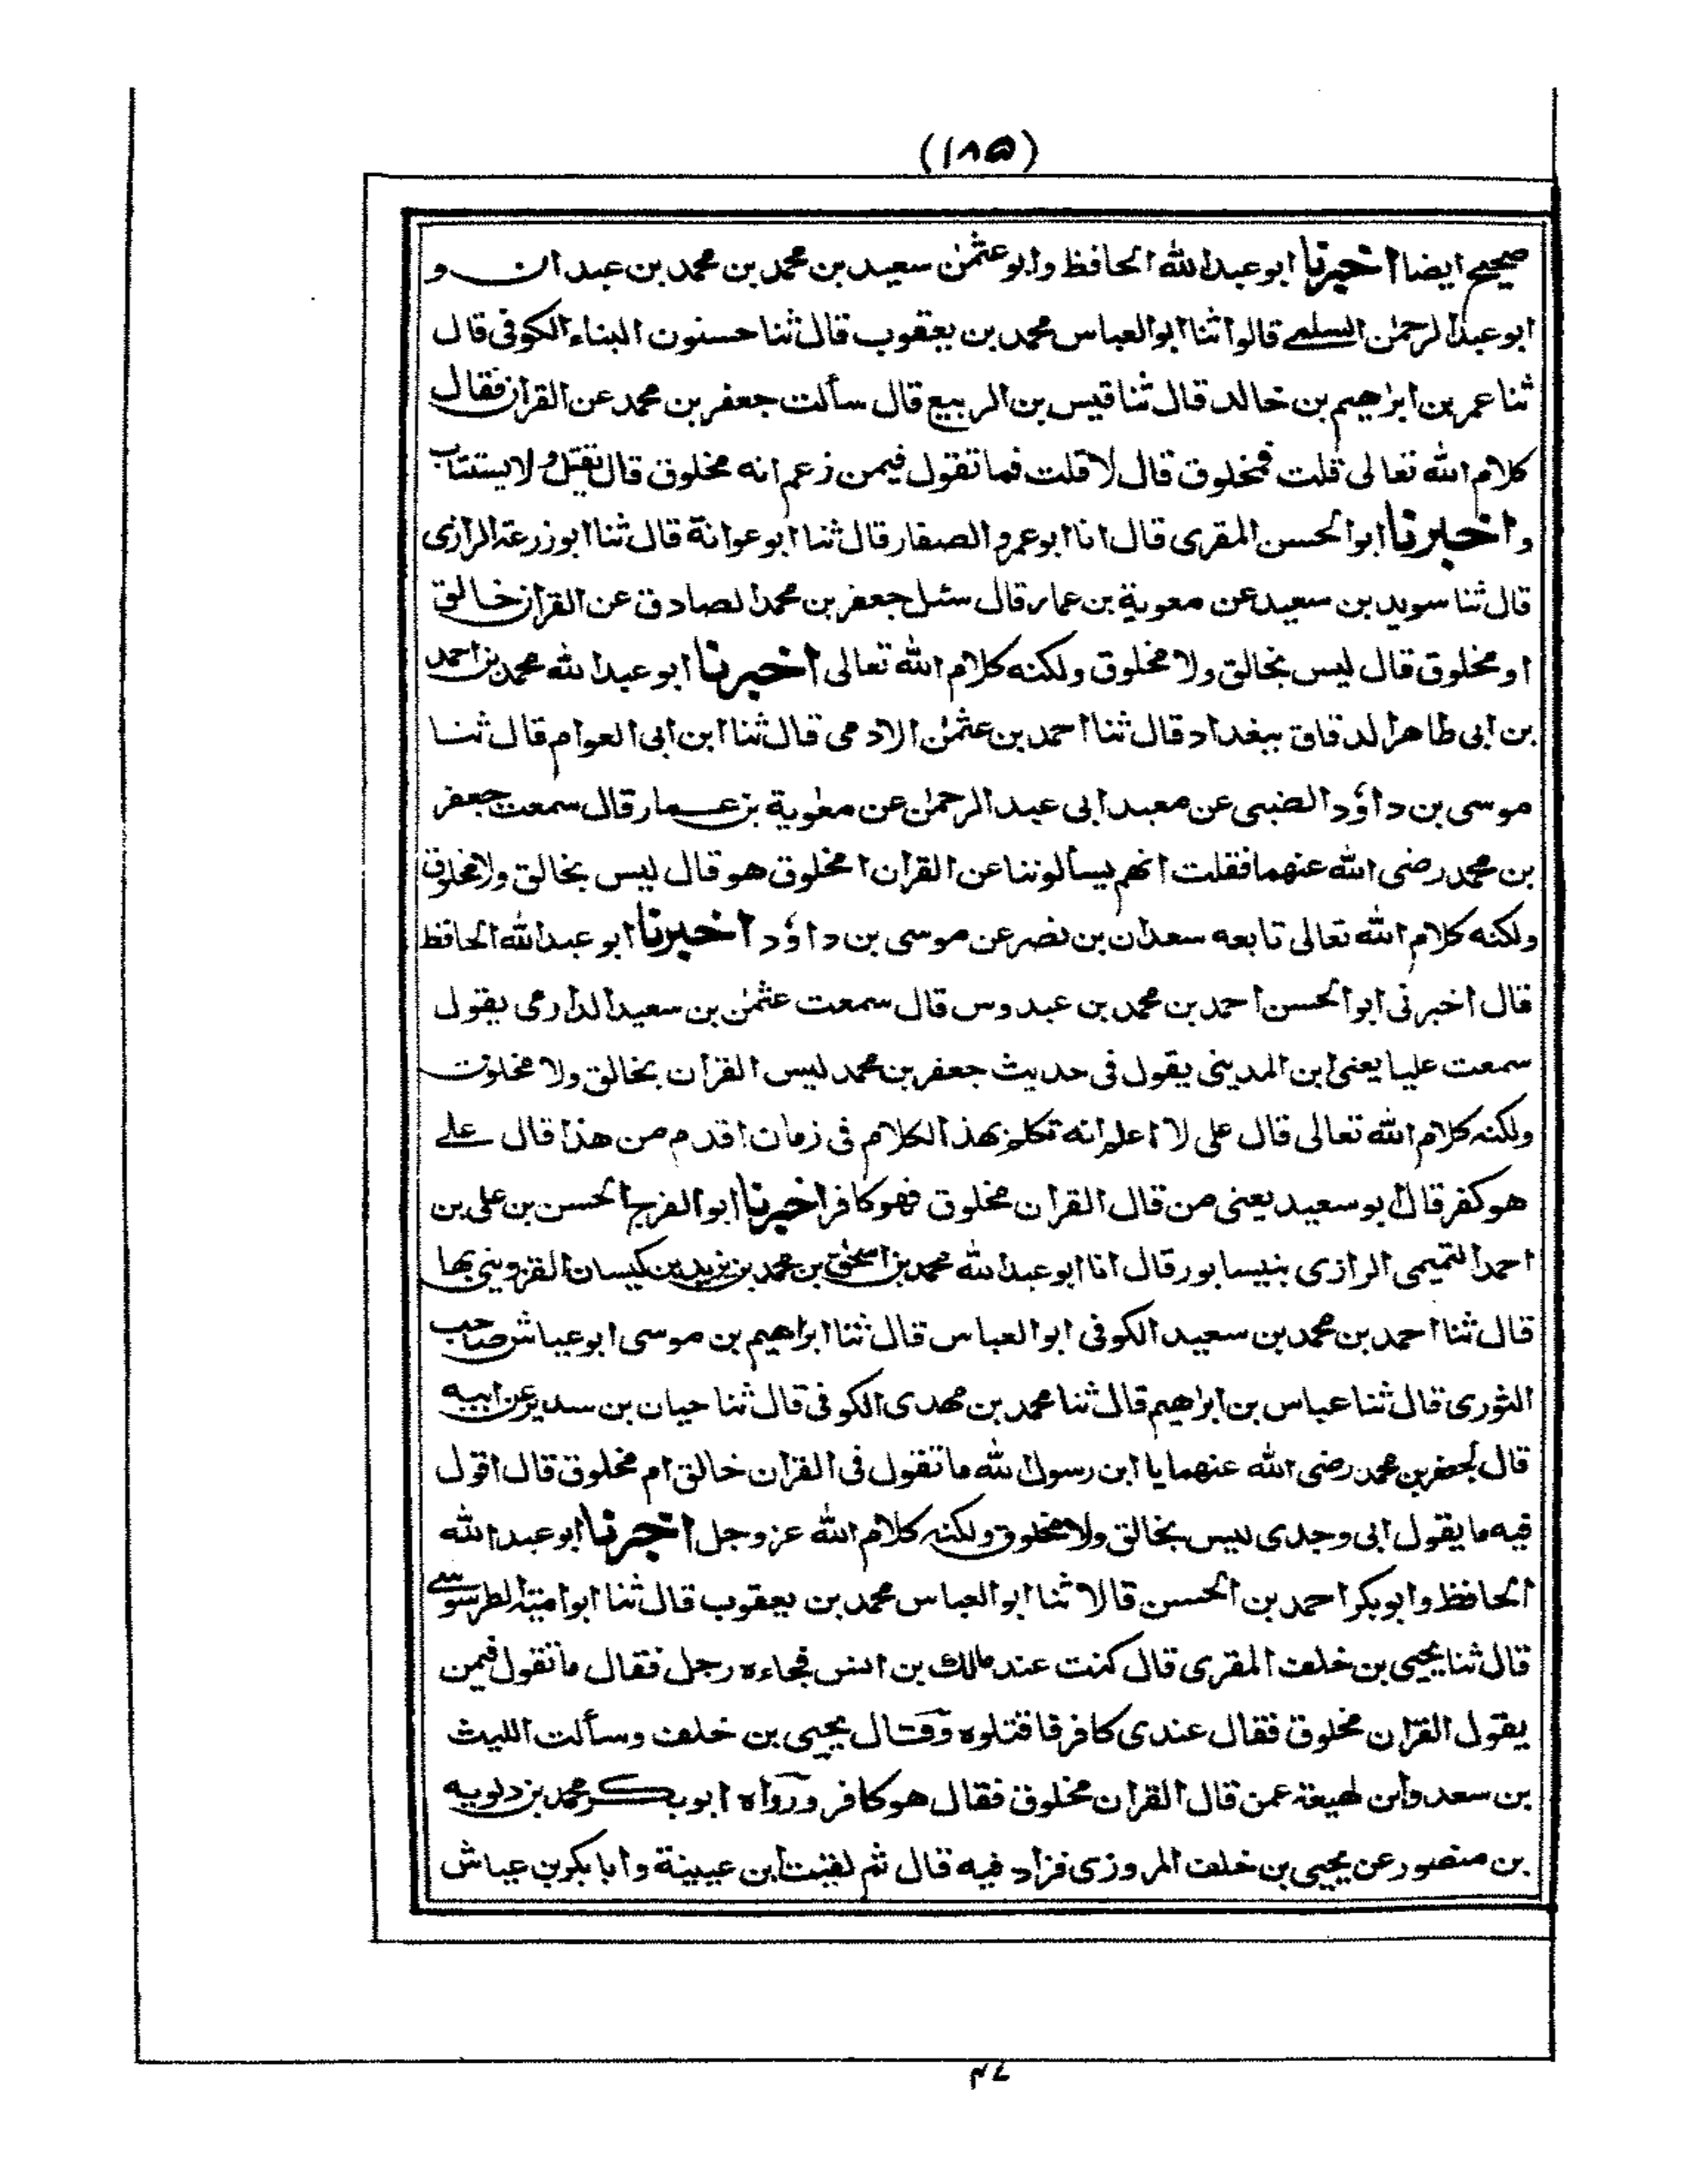 (١٨٥)
صحيح ايضا اخبرنا ابو عبد الله الحافظ وابو عثمٰن سعيد بن محمد بن محمد بن عبدان و
ابو عبد الرحمٰن السلمے قالوا ثنا ابو العباس محمد بن يعقوب قال ثنا حسنون البناء الكوفى قال
ثنا عمر بن ابرٰهيم بن خالد قال ثنا قيس بن الربيع قال سألت جعفر بن محمد عن القرآن فقال
كلام الله تعالى قلت فمخلوق قال لا قلت فما تقول فيمن زعم انه مخلوق قال يقتل ولا يستتاب
واخبرنا ابو الحسن المقرى قال انا ابو عمرو الصفار قال ثنا ابو عوانة قال ثنا ابو زرعة الرازى
قال ثنا سويد بن سعيد عن معوية بن عمار قال سئل جعفر بن محمد الصادق عن القرآن خالق
او مخلوق قال ليس بخالق ولا مخلوق ولكنه كلام الله تعالى اخبرنا ابو عبد الله محمد بن احمد
بن ابى طاهر الدقاق ببغداد قال ثنا احمد بن عثمٰن الادمى قال ثنا ابن ابى العوام قال ثنا
موسى بن داؤد الضبى عن معبد ابى عبد الرحمٰن عن معٰوية بن عمار قال سمعت جعفر
بن محمد رضى الله عنهما فقلت انهم يسألوننا عن القرآن ا مخلوق هو قال ليس بخالق ولا مخلوق
ولكنه كلام الله تعالى تابعه سعدان بن نصر عن موسى بن داؤد اخبرنا ابو عبد الله الحافظ
قال اخبرنى ابو الحسن احمد بن محمد بن عبدوس قال سمعت عثمٰن بن سعيد الدارمى يقول
سمعت عليا يعنى ابن المدينى يقول فى حديث جعفر بن محمد ليس القرآن بخالق ولا مخلوق
ولكنه كلام الله تعالى قال على لا اعلم انه تكلم بهذا الكلام فى زمان اقدم من هذا قال علے
هو كفر قال ابو سعيد يعنى من قال القرآن مخلوق فهو كافر اخبرنا ابو الفرج الحسن بن على بن
احمد التميمى الرازى بنيسابور قال انا ابو عبد الله محمد بن اسحٰق بن محمد بن يزيد بن كيسان القزوينى بها
قال ثنا احمد بن محمد بن سعيد الكوفى ابو العباس قال ثنا ابراهيم بن موسى ابو عياش صاحب
الثورى قال ثنا عباس بن ابرٰهيم قال ثنا محمد بن مهدى الكوفى قال ثنا حيان بن سدير عن ابيه
قال لجعفر بن محمد رضى الله عنهما يا ابن رسول الله ما تقول فى القرآن خالق ام مخلوق قال اقول
فيه ما يقول ابى وجدى ليس بخالق ولا مخلوق ولكنه كلام الله عز وجل اخبرنا ابو عبد الله
الحافظ وابو بكر احمد بن الحسن قالا ثنا ابو العباس محمد بن يعقوب قال ثنا ابو امية الطرسوسے
قال ثنا يحيى بن خلف المقرى قال كنت عند مالك بن انس فجاءه رجل فقال ما تقول فيمن
يقول القرآن مخلوق فقال عندى كافر فاقتلوه وقال يحيى بن خلف وسألت الليث
بن سعد وابن لهيعة عمن قال القرآن مخلوق فقال هو كافر ورواه ابو بكر محمد بن دلويه
بن منصور عن يحيى بن خلف المروزى فزاد فيه قال ثم لقيت ابن عيينة وابا بكر بن عياش